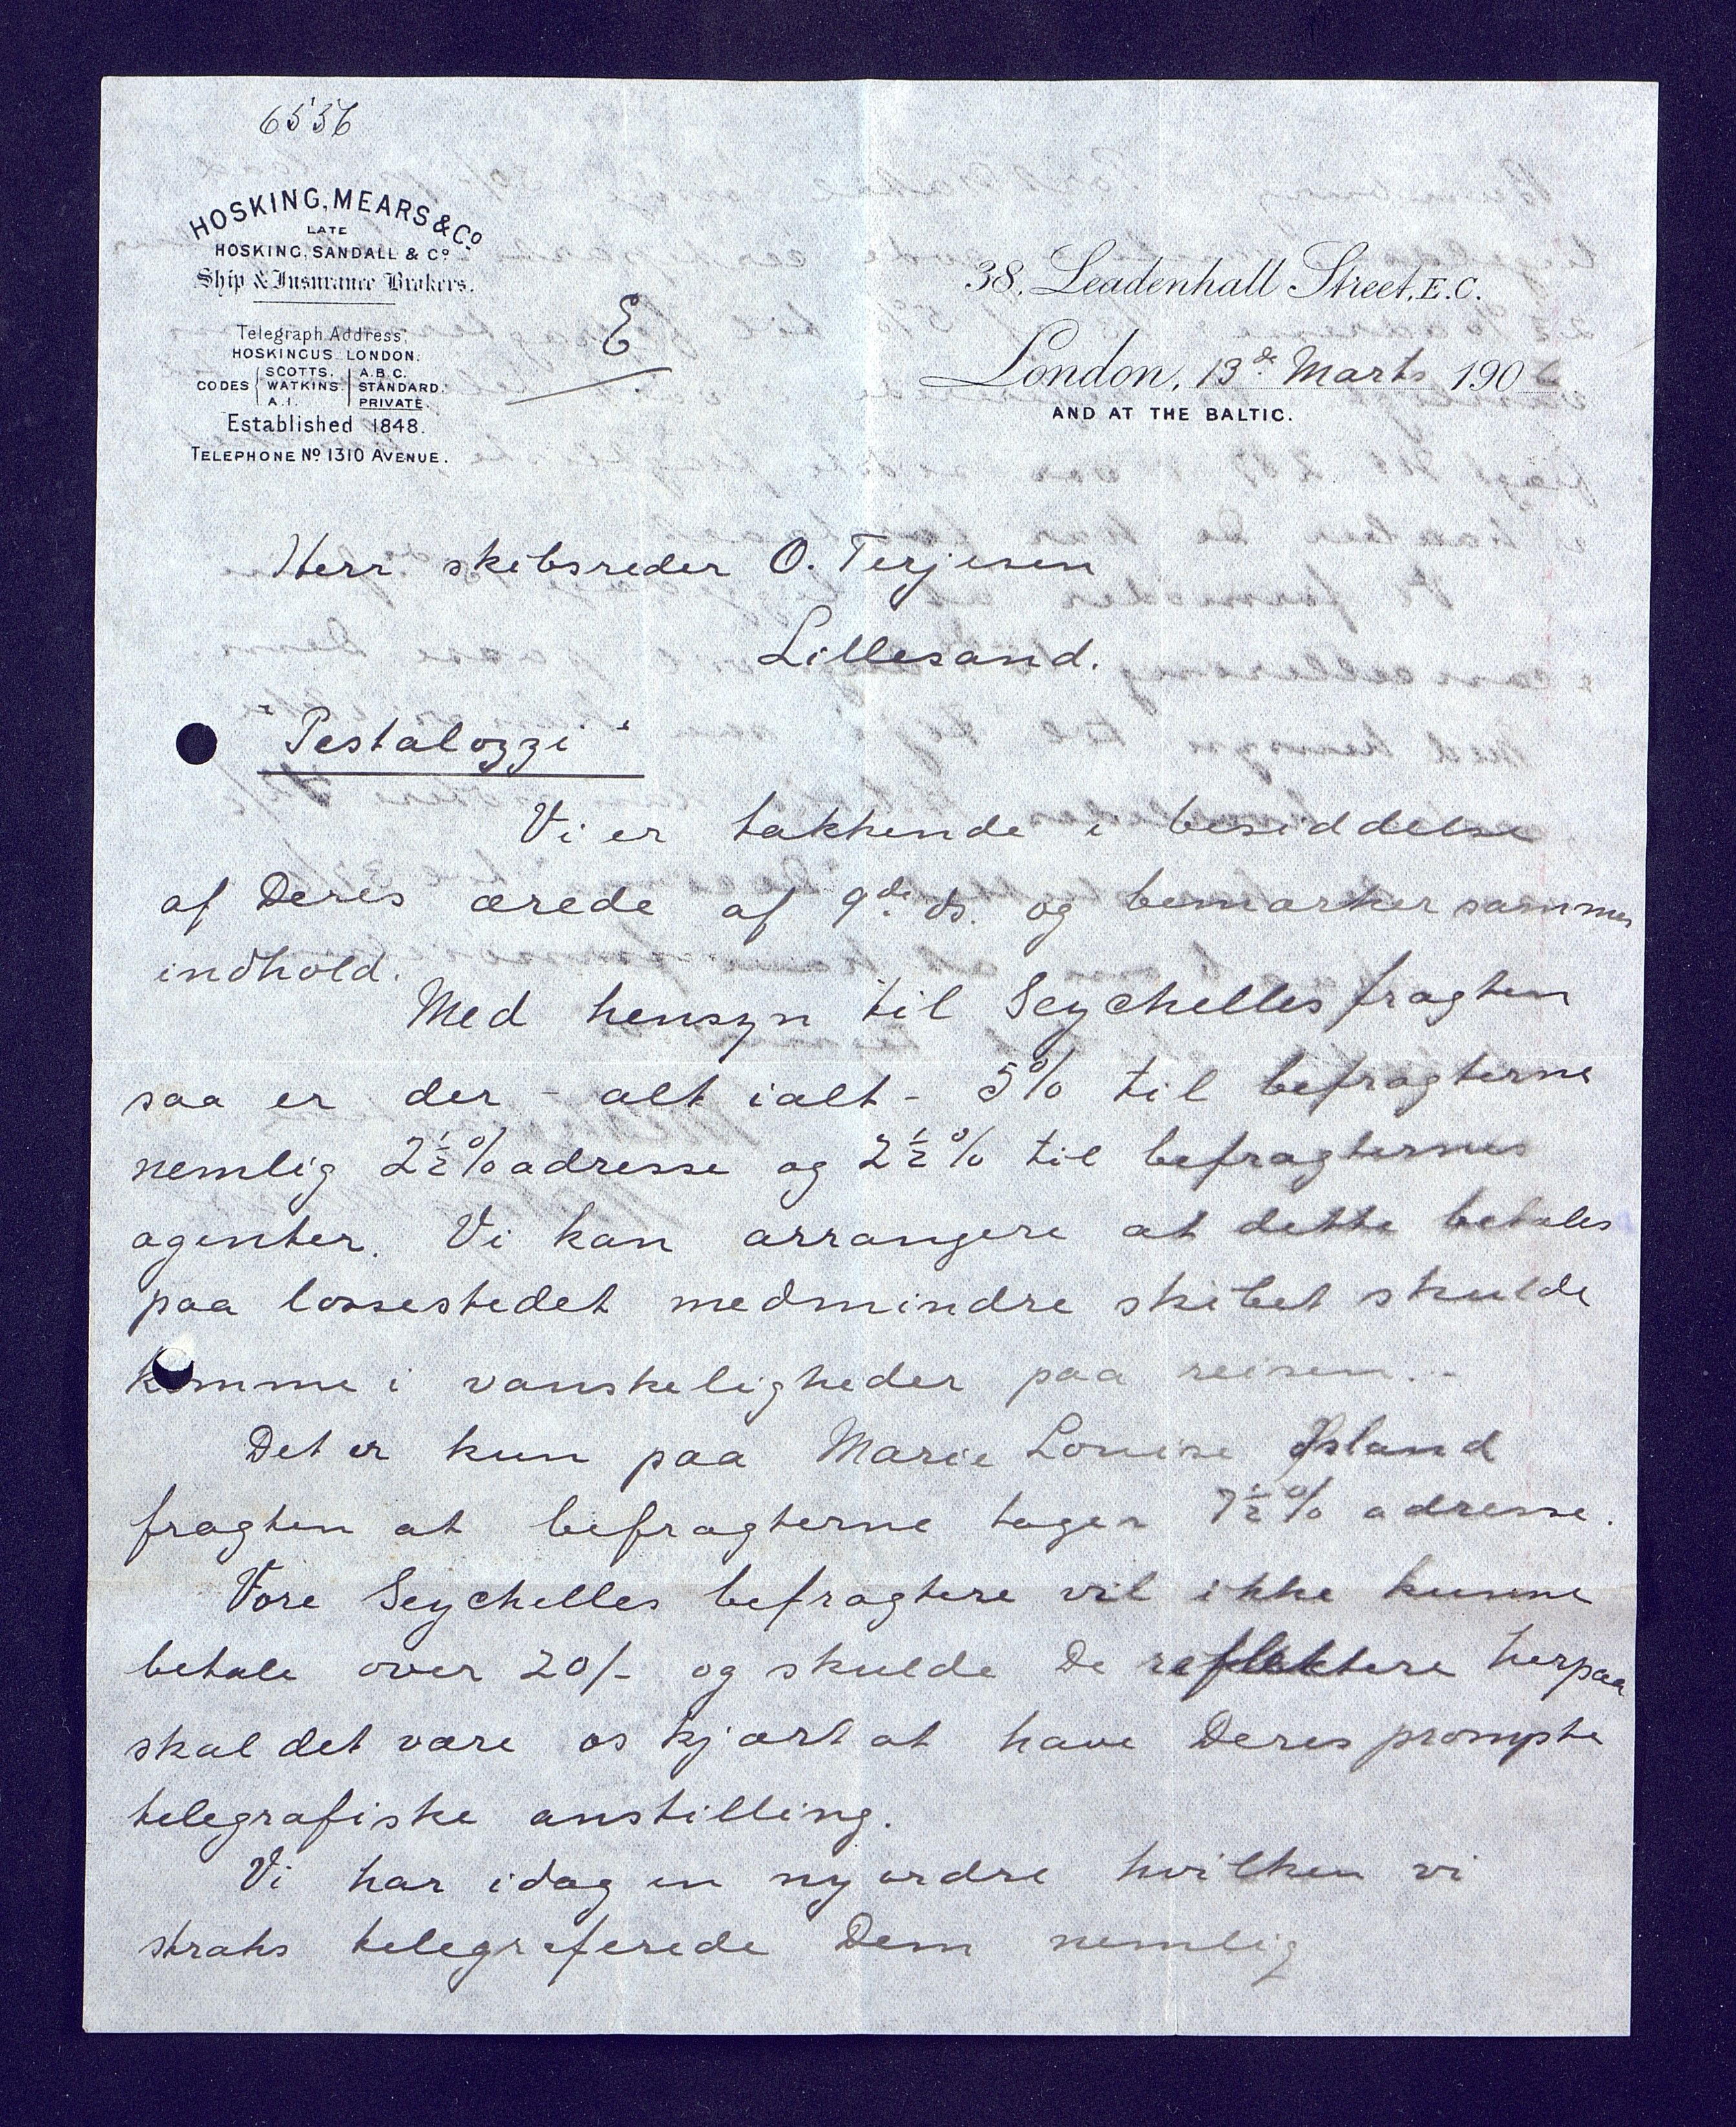 6556
HOSKING, MEARS & Co.
LATE
HOSKING, SANDALL & Co.
Ship & Insurance Brokers.
Telegraph Address,
HOSKINGUS LONDON.
CODES { SCOTTS. | A.B.C.
WATKINS. | STANDARD.
A.I. | PRIVATE.
Established 1848.
TELEPHONE No 1310 AVENUE.
E
38, Leadenhall Street, E.C.
London, 13de Marts 1906
AND AT THE BALTIC.
Herr skibsreder O. Terjesen
Lillesand.
"Pestalozzi"
Vi er takkende i besiddelse
af Deres ærede af 9de ds. og bemærker sammes
indhold.
Med hensyn til Seychelles fragten
saa er der - alt ialt - 5% til befragterne
nemlig 2½% adresse og 2½% til befragternes
agenter. Vi kan arrangere at dette betales
paa lossestedet medmindre skibet skulde
komme i vanskeligheder paa reisen. -
Det er kun paa Marie Louise Island
fragten at befragterne tager 7½% adresse.
Vore Seychelles befragtere vil ikke kunne
betale over 20/- og skulde De reflektere herpaa
skal det være os kjært at have Deres prompte
telegrafiske anstilling.
Vi har idag en ny ordre hvilken vi
straks telegraferede Dem nemlig